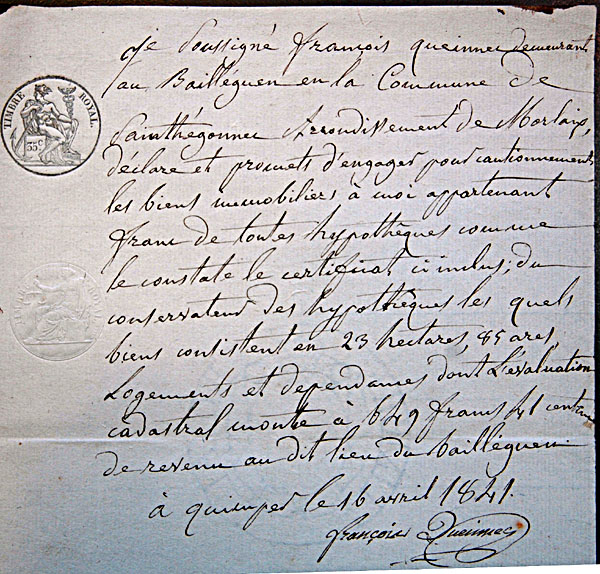 TIMBRE ROYAL.
35c
Je Soussigné François Queinnec demeurant
au Bailléguen en la Commune de
Sainthégonnec Arrondissement de Morlaix,
déclare et promets d'engager pour cautionnement
les biens immobiliers à moi appartenant
franc de toutes hypothèques comme
le constate le certificat ci inclus, du
conservateur des hypothèques les quels
biens consistent en 23 hectares, 85 ares,
Logements et dependances dont L'évaluation
cadastral monte à 649 francs 41 centimes
de revenu au dit lieu du Bailléguen.
à quimper le 16 avril 1841.
françois Queinnec